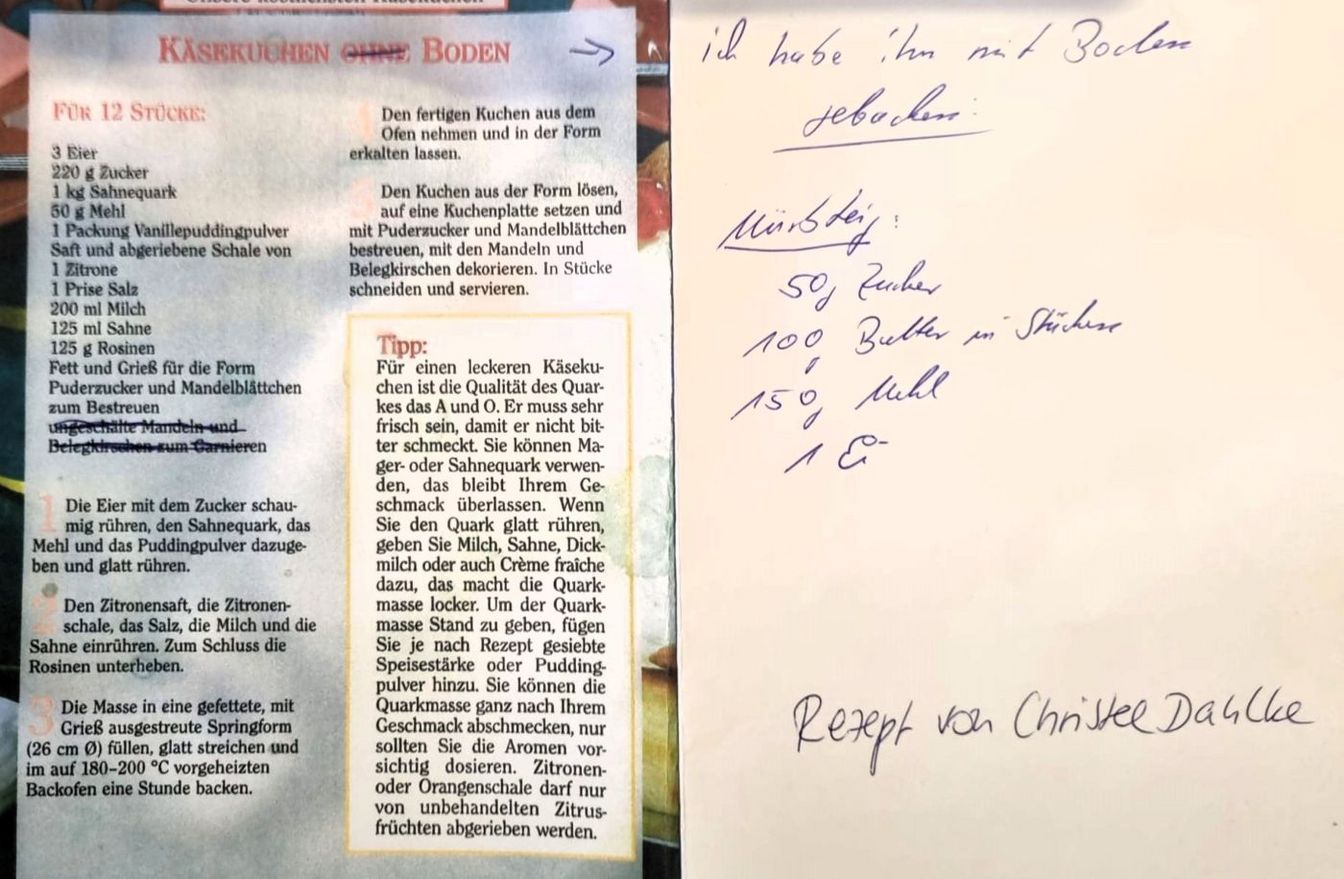 Unsere köstlichsten Käsekuchen
KÄSEKUCHEN OHNE BODEN
FÜR 12 STÜCKE:
3 Eier
220 g Zucker
1 kg Sahnequark
50 g Mehl
1 Packung Vanillepuddingpulver
Saft und abgeriebene Schale von
1 Zitrone
1 Prise Salz
200 ml Milch
125 ml Sahne
125 g Rosinen
Fett und Grieß für die Form
Puderzucker und Mandelblättchen
zum Bestreuen
ungeschälte Mandeln und
Belegkirschen zum Garnieren
1 Die Eier mit dem Zucker schau-
mig rühren, den Sahnequark, das
Mehl und das Puddingpulver dazuge-
ben und glatt rühren.
2 Den Zitronensaft, die Zitronen-
schale, das Salz, die Milch und die
Sahne einrühren. Zum Schluss die
Rosinen unterheben.
3 Die Masse in eine gefettete, mit
Grieß ausgestreute Springform
(26 cm Ø) füllen, glatt streichen und
im auf 180–200 °C vorgeheizten
Backofen eine Stunde backen.
4 Den fertigen Kuchen aus dem
Ofen nehmen und in der Form
erkalten lassen.
5 Den Kuchen aus der Form lösen,
auf eine Kuchenplatte setzen und
mit Puderzucker und Mandelblättchen
bestreuen, mit den Mandeln und
Belegkirschen dekorieren. In Stücke
schneiden und servieren.
Tipp:
Für einen leckeren Käseku-
chen ist die Qualität des Quar-
kes das A und O. Er muss sehr
frisch sein, damit er nicht bit-
ter schmeckt. Sie können Ma-
ger- oder Sahnequark verwen-
den, das bleibt Ihrem Ge-
schmack überlassen. Wenn
Sie den Quark glatt rühren,
geben Sie Milch, Sahne, Dick-
milch oder auch Crème fraîche
dazu, das macht die Quark-
masse locker. Um der Quark-
masse Stand zu geben, fügen
Sie je nach Rezept gesiebte
Speisestärke oder Pudding-
pulver hinzu. Sie können die
Quarkmasse ganz nach Ihrem
Geschmack abschmecken, nur
sollten Sie die Aromen vor-
sichtig dosieren. Zitronen-
oder Orangenschale darf nur
von unbehandelten Zitrus-
früchten abgerieben werden.
ich habe ihn mit Boden
gebacken:
Mürbteig:
50g Zucker
100g Butter in Stücken
150g Mehl
1 Ei
Rezept von Christel Dahlke